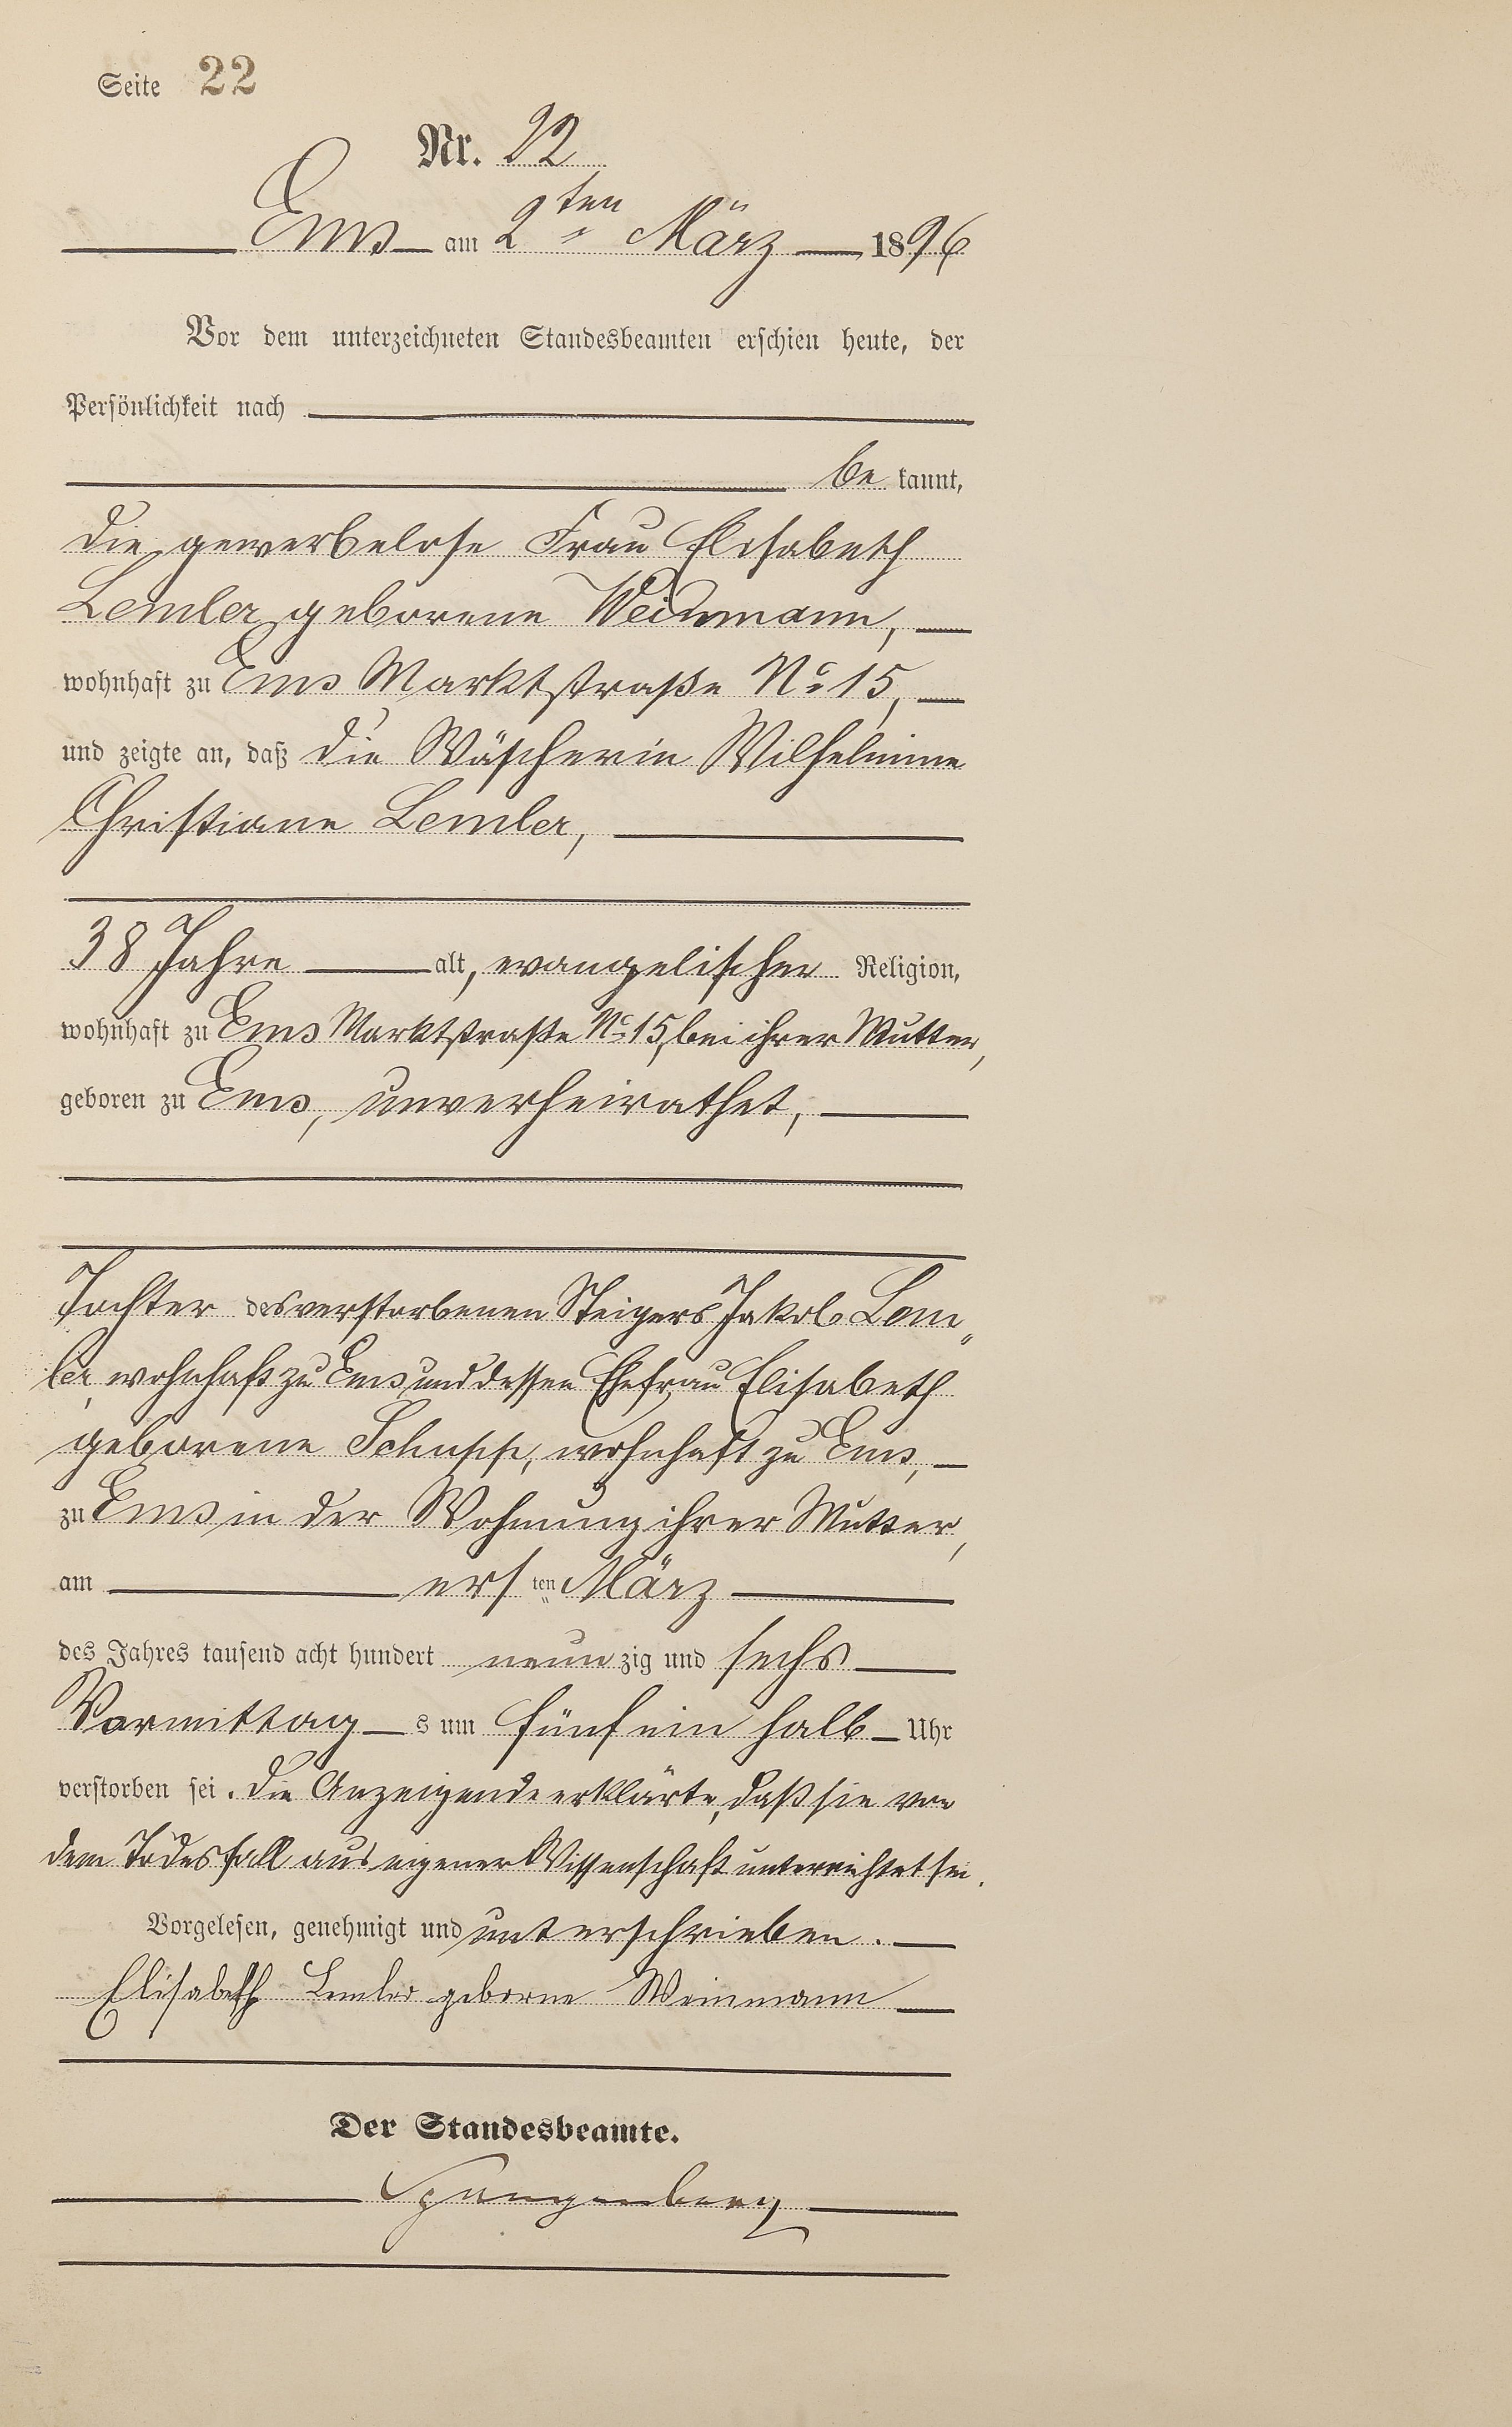 Seite 22
Nr. 22
Ems am 2ten März 1896
Vor dem unterzeichneten Standesbeamten erschien heute, der
Persönlichkeit nach
be kannt,
die gewerbelose Frau Elisabeth
Lemler geborene Weinmann,
wohnhaft zu Ems Marktstraße No 15,
und zeigte an, daß die Wäscherin Wilhelmine
Christiane Lemler,
38 Jahre alt, evangelischer Religion,
wohnhaft zu Ems Marktstraße No 15, bei ihrer Mutter,
geboren zu Ems, unverheirathet,
Tochter des verstorbenen Steigers Jakob Lem„
ler, wohnhaft zu Ems, und dessen Ehefrau Elisabeth
geborene Schupp, wohnhaft zu Ems,
zu Ems in der Wohnung ihrer Mutter,
am ersten März
des Jahres tausend acht hundert neunzig und sechs
Vormittags um fünf ein halb Uhr
verstorben sei. Die Anzeigende erklärte, daß sie von
dem Todesfall aus eigener Wissenschaft unterrichtet sei.
Vorgelesen, genehmigt und unterschrieben.
Elisabeth Lemler geborne Weinmann
Der Standesbeamte.
Spangenberg